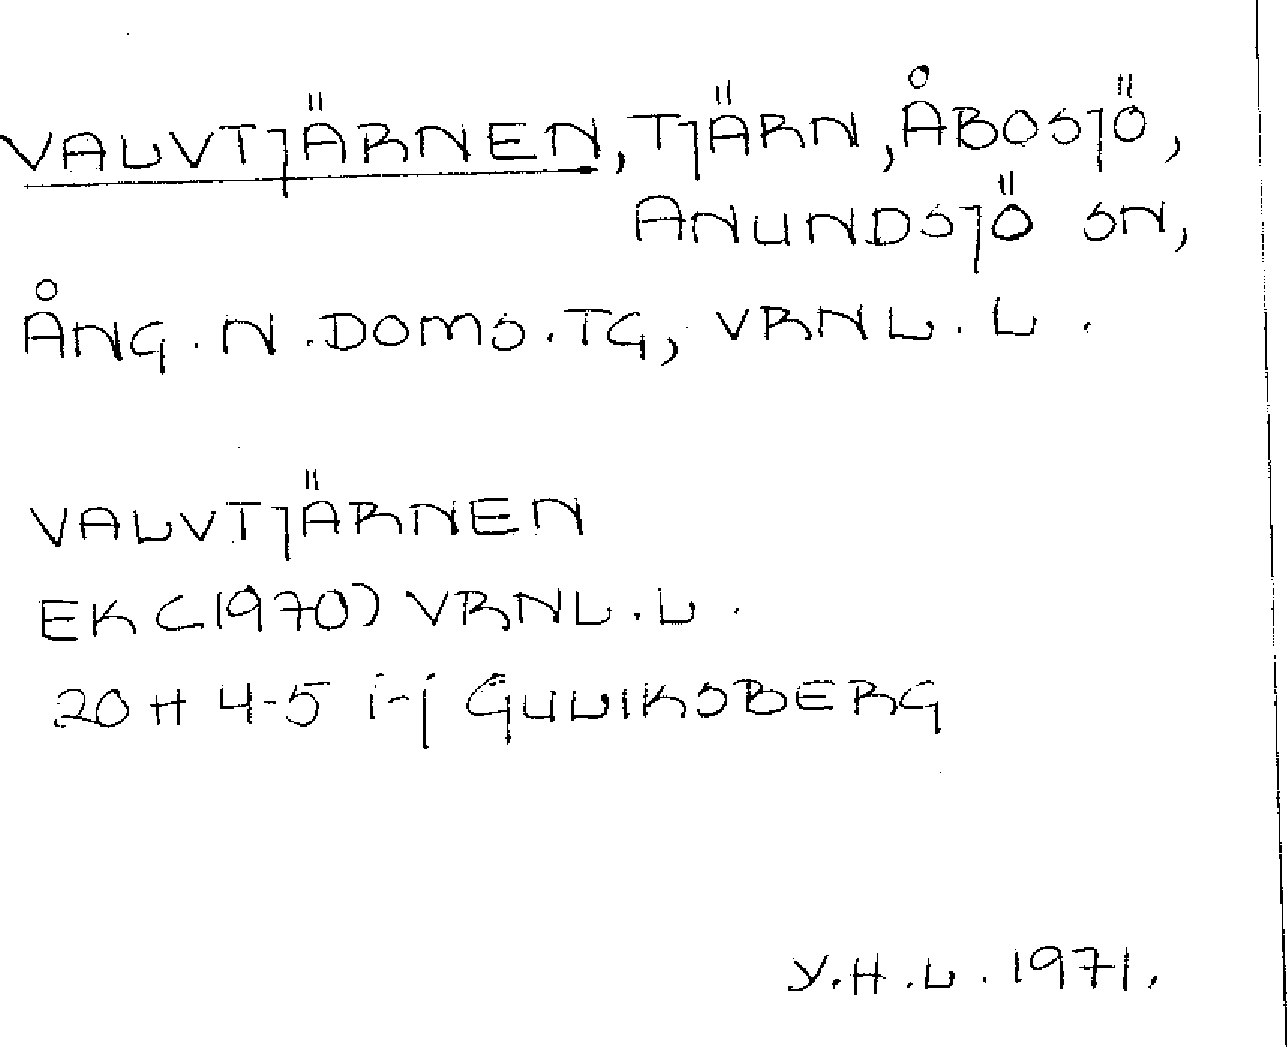 VALVTJÄRNEN, TJÄRN, ÅBOSJÖ,
ANUNDSJÖ SN,
ÅNG. N. DOMS. TG, VRNL. L.
VALVTJÄRNEN
EK (1970) VRNL. L.
20 H 4-5 i-j GULLIKSBERG
Y. H. L. 1971.